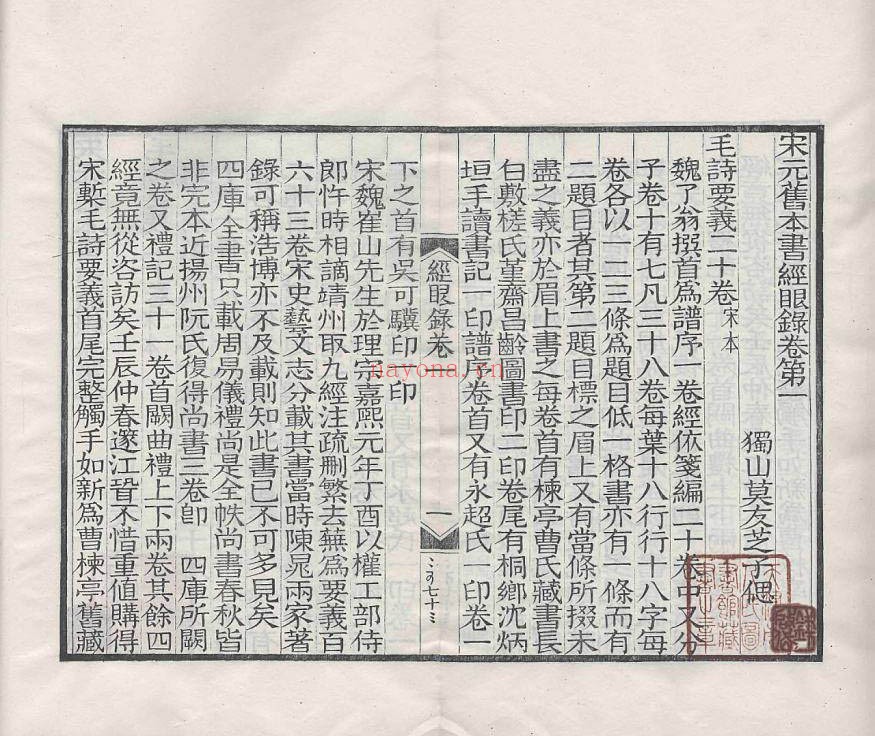 宋元舊本書經眼錄卷第一
獨山莫友芝子偲
毛詩要義二十卷宋本
魏了翁掇首爲譜序一卷經依箋編二十卷中又分
子卷十有七凡三十八卷每葉十八行行十八字每
卷各以一二三條爲題目低一格書亦有一條而有
二題目者其第二題目標之眉上又有當條所掇未
盡之義亦於眉上書之每卷首有楝亭曹氏藏書長
白敷槎氏堇齋昌齡圖書印二印卷尾有桐鄉沈炳
垣手讀書記一印譜序卷首又有永超氏一印卷一
經眼錄卷一
一
下之首有吳可驥印一印
宋魏崔山先生於理宗嘉熙元年丁酉以權工部侍
郎忤時相謫靖州取九經注疏刪繁去蕪爲要義百
六十三卷宋史藝文志分載其書當時陳晁兩家著
錄可稱浩博亦不及載則知此書已不可多見矣
四庫全書只載周易儀禮尚是全帙尚書春秋皆
非完本近揚州阮氏復得尚書三卷卽 四庫所闕
之卷又禮記三十一卷首闕曲禮上下兩卷其餘四
經竟無從咨訪矣壬辰仲春邃江㬜不惜重值購得
宋槧毛詩要義首尾完整觸手如新爲曹楝亭舊藏
nayona.cn